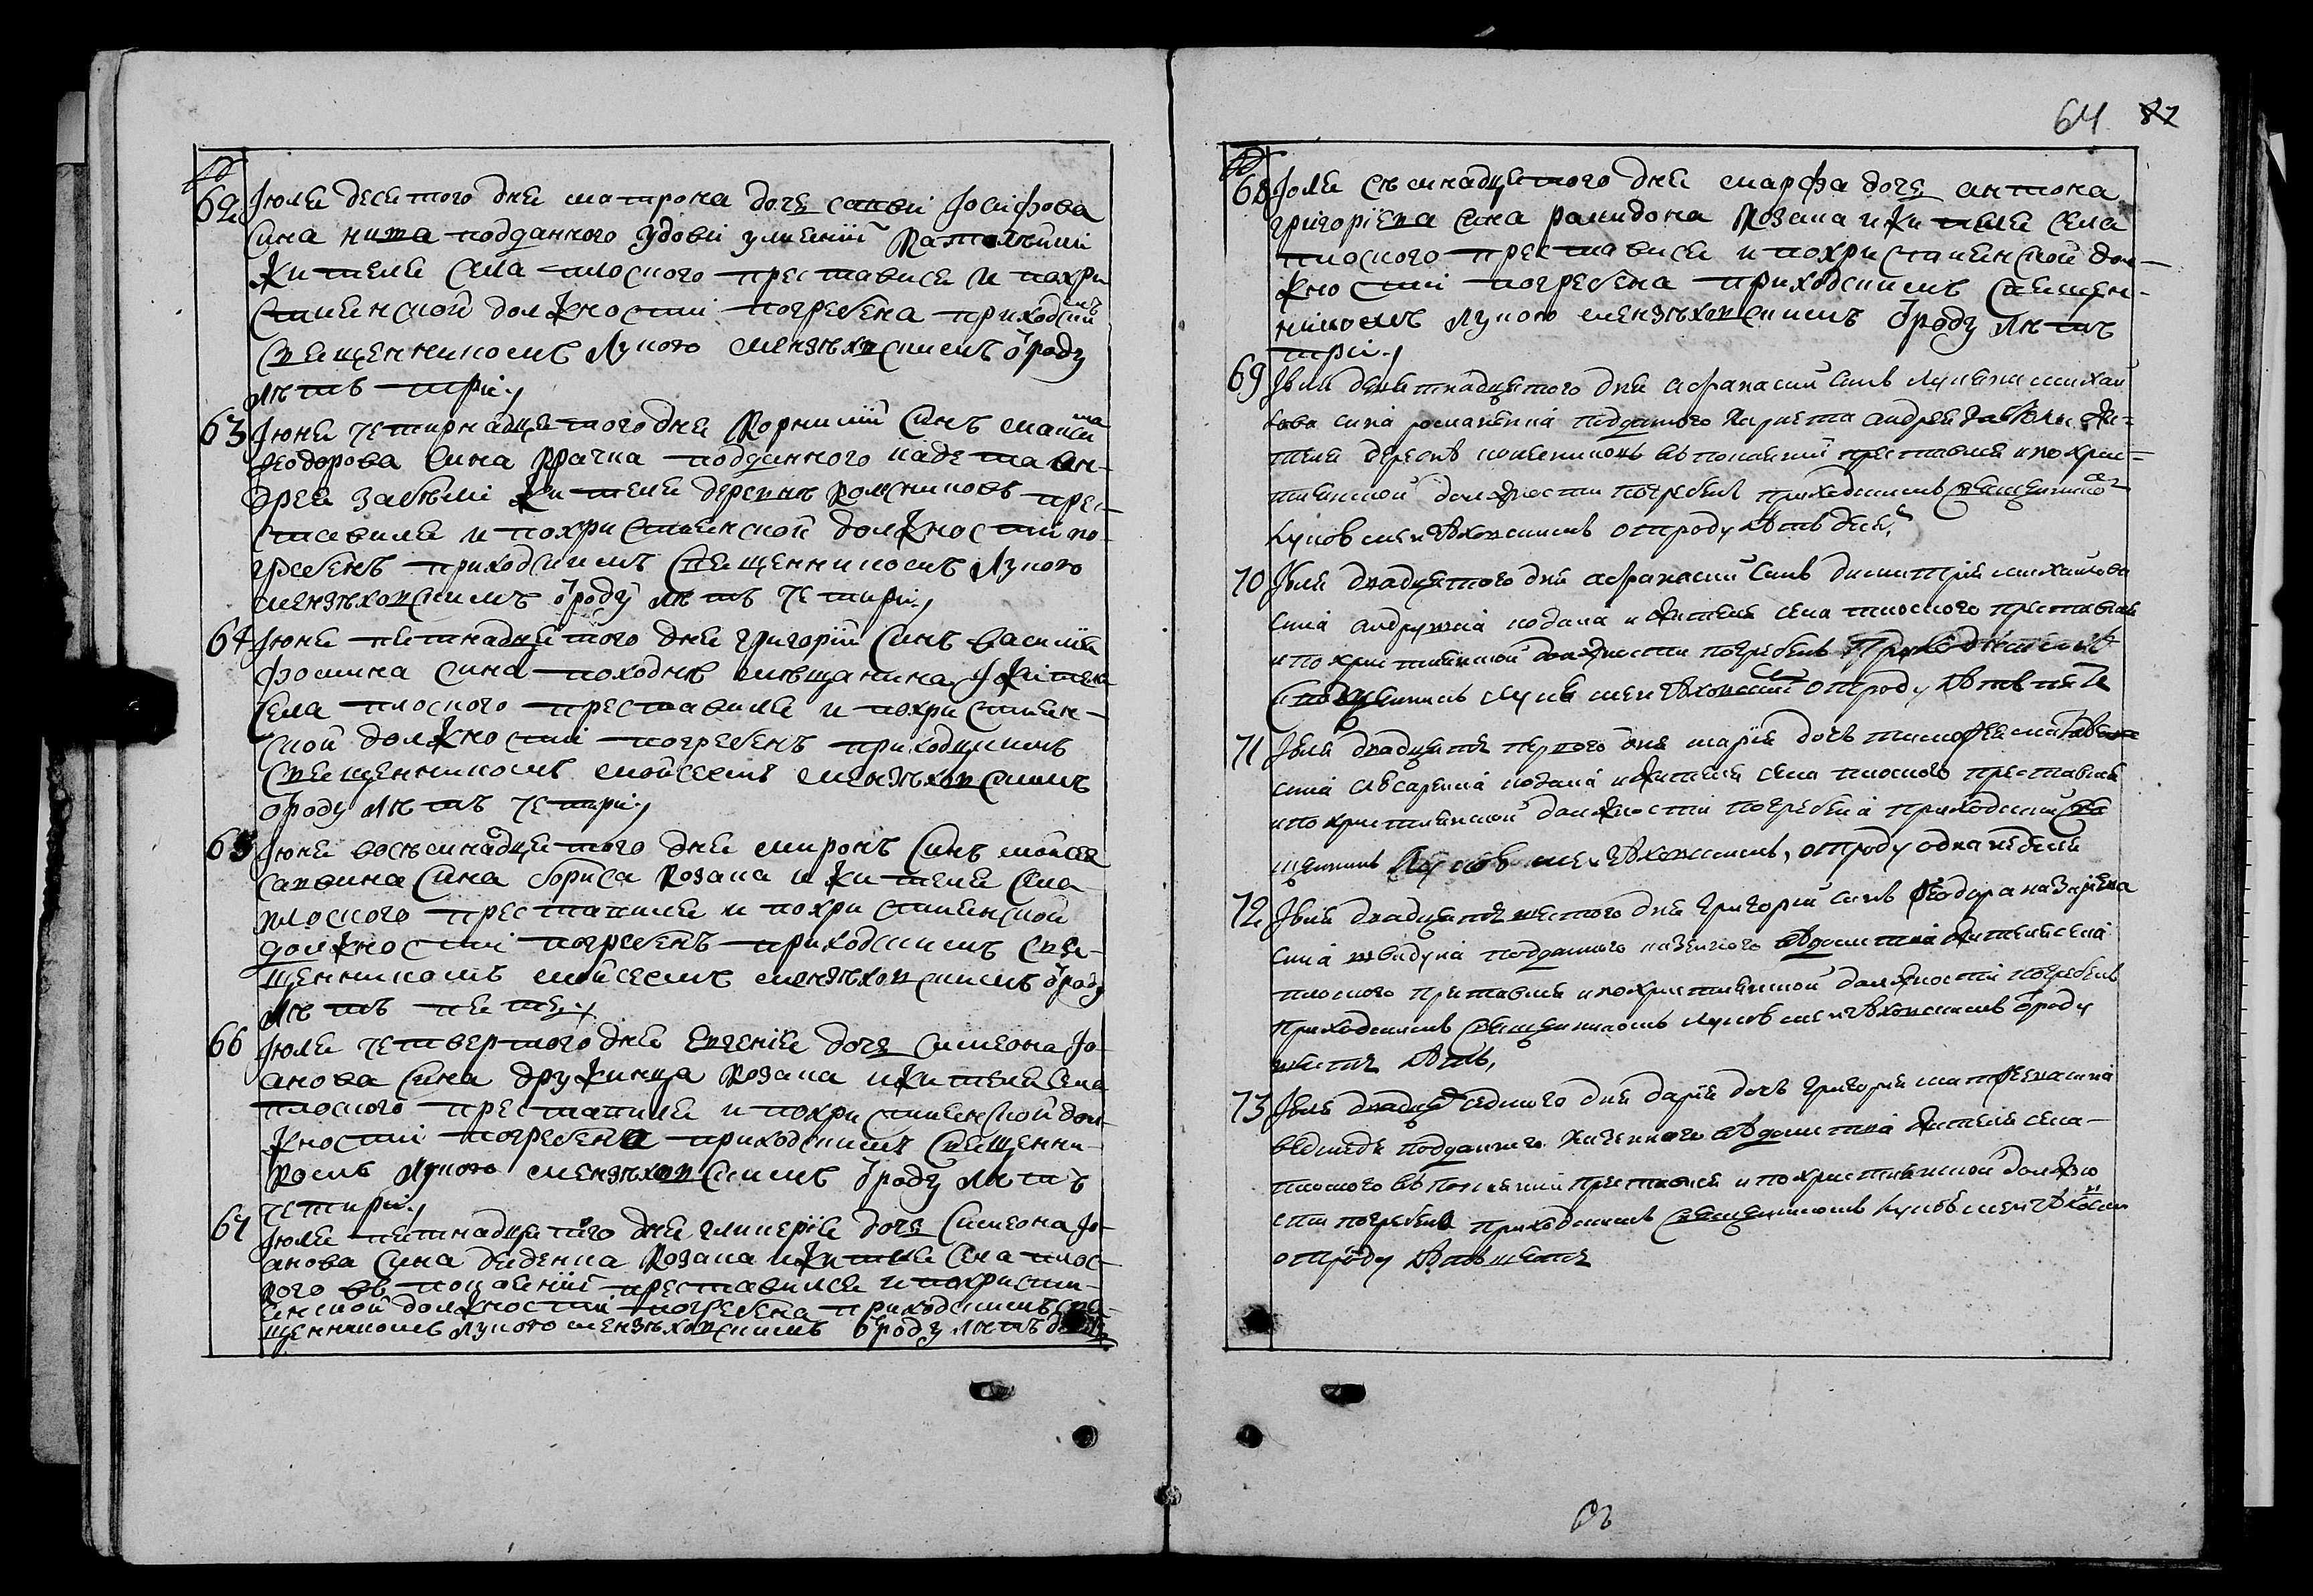 64 82
№
62 Июля десятого дня матрона дочь савви Іосифова
сина кита подданного удови улиянiй Растольній
жителя села плоского преставися и похри
стиянской должности погребена приходским
священником Лукою мензеховским ѿроду
лѣтъ три
63 Июня четирнадцятого дня Корнилий Синъ маѯима
Ѳеодорова сина Крачка подданного кадета Ан-
дрея Забѣли жителя деревнѣ Колесниковъ прес-
тавился и похристиянской должности по-
гребенъ приходскимъ священникомъ Лукою
мензеховскимъ ѿроду лѣтъ четири
64 Июня пятнадцятого дня григорий Синъ василия
Фомина сина походнѣ мѣщанина и жителя
села плоского преставился и похристиян-
ской должности погребенъ приходскимъ
священникомъ мойсеемъ мензеховскимъ
ѿроду лѣтъ четири
65 Июня восемнадцятого дня миронъ Синъ мойсея
савина сина бориса козака и жителя села
плоского преставился и похристиянской
должности погребенъ приходскимъ свя-
щенникомъ мойсеемъ мензеховскимъ ѿроду
лѣтъ пять
66 Июля четвертого дня Евгения дочь симеона Іо-
анова сина дружинца козака и жителя села
плоского преставился и похристиянской дол-
жности погребена приходскимъ священни-
комъ Лукою мензеховскимъ ѿроду лѣтъ
четири
67 Июля пятнадцятого дня гликерия дочь симеона Іо-
анова сина диденка козака и жителя села плос-
кого въ покаянии преставился и похристи-
янской должности погребена приходскимъ свя-
щенникомъ Лукою мензеховскимъ ѿроду лѣтъ
№
68 Июля семнадцятого дня марфа дочь антона
григориева сина рамидона козака и жителя села
плоского преставися и похристиянской дол-
жности погребена приходскимъ священ-
никомъ Лукою мензеховскимъ ѿроду лѣтъ
три
69 Июля девятнадцятого дня афанасий синъ лукяна михай
лова сина романенка подданного кадета андрея Забѣли жи-
теля деревнѣ колесниковъ въ покаянии преставися и похрис-
тиянской должности погребенъ приходскимъ священником
Лукою мензеховскимъ отроду лѣтъ
70 Июля двадцятого дня афанасий синъ димитрия михаилова
сина андружка козака и жителя села плоского преставися
и похристиянской должности погребенъ приходскимъ
священникомъ Лукою мензеховским отроду лѣтъ пять
71 Июля двадцять первого дня мария дочь тимофея матвеева
сина слесаренка козака и жителя села плоского преставися
и похристиянской должности погребена приходским свя
щенникомъ Лукою мензеховскимъ, отроду одна неделя
72 Июля двадцять шестого дня григорий синъ Ѳеодора назарева
сина шведуна подданного казенного вѣдомства жителя села
плоского преставися и похристиянской должности погребенъ
приходскимъ священникомъ Лукою мензеховскимъ ѿроду
шесть лѣтъ,
73 Июля двадцять седмого дня дария дочь григория матфеева сина
ведмедя подданного казенного вѣдомства жителя села
плоского въ покаянии преставися и похристиянской должно
сти погребена приходскимъ священникомъ Лукою мензеховским
отроду лѣтъ шесть